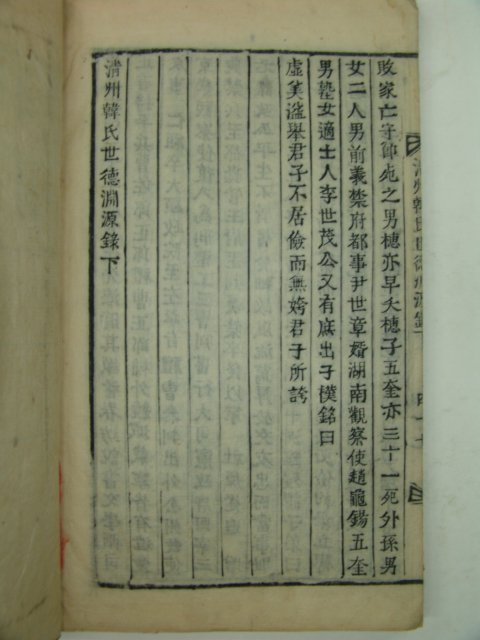 敗家亡守節死之男穗亦早夭穗子五奎亦三十一死外孫男
女二人男前義禁府都事尹世章婿湖南觀察使趙龜錫五奎
男塾女適士人李世茂公又有庶出子樸銘曰
虛美溢舉君子不居儉而無誇君子所誇
清州韓氏世德淵源錄下